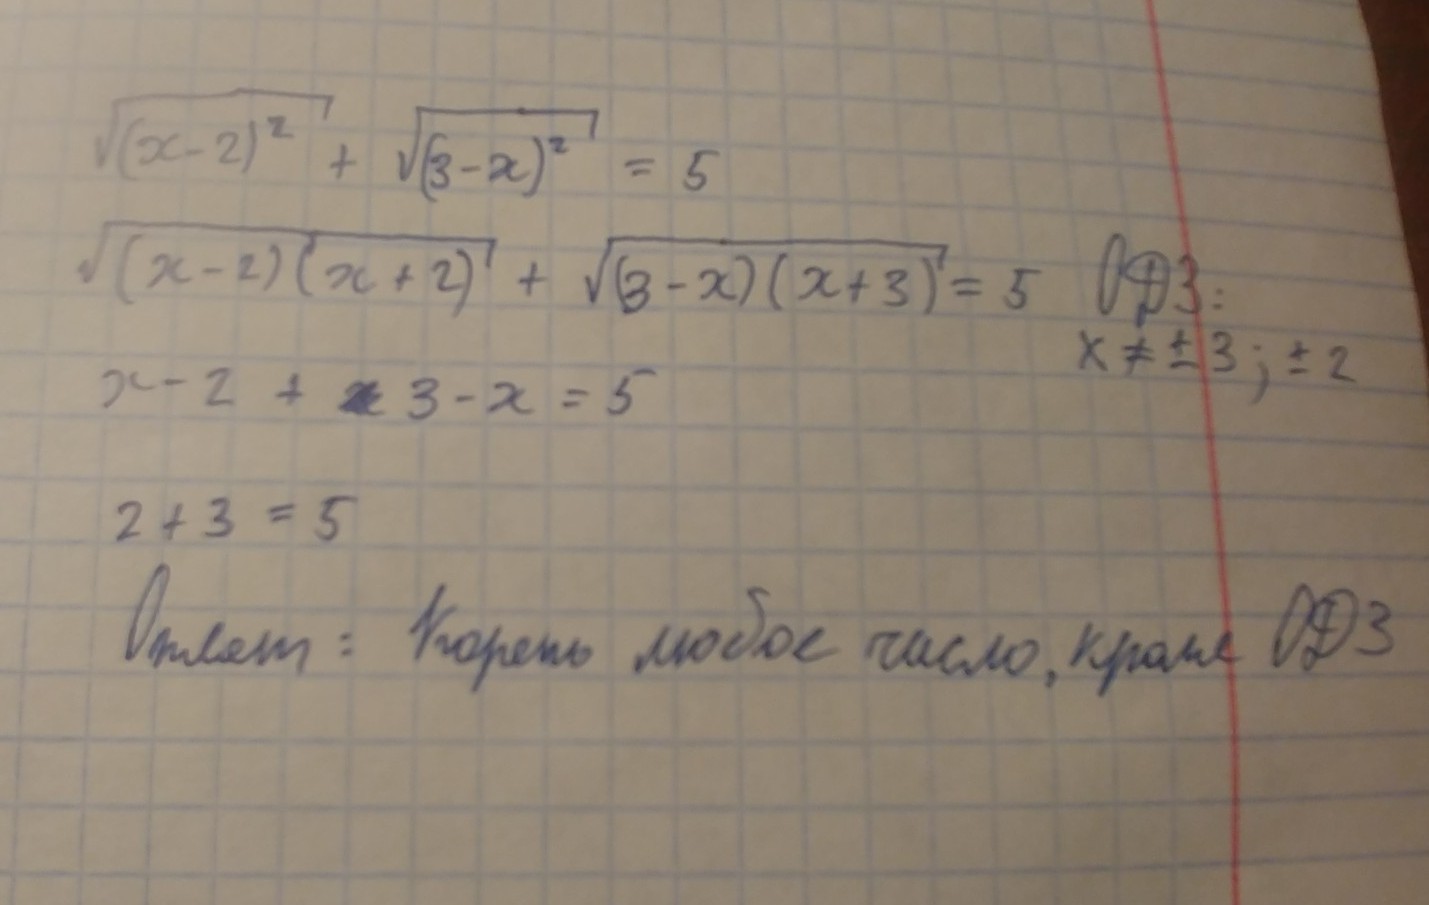 √(x-2)² + √(3-x)² = 5
√(x-2)(x+2) + √(3-x)(x+3) = 5 ОДЗ:
x ≠ ±3; ±2
x-2 + 3-x = 5
2+3 = 5
Ответ: Корень любое число, кроме ОДЗ